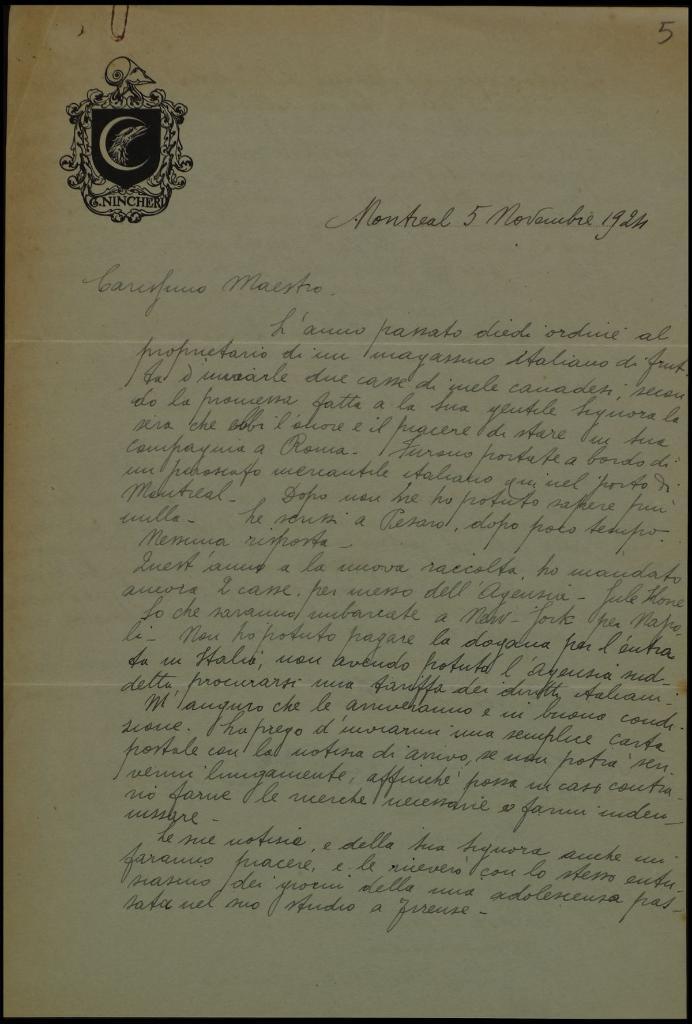 5
G. NINCHERI
Montreal 5 Novembre 1924
Carissimo Maestro.
L'anno passato diedi ordine al
proprietario di un magassino Italiano di frut-
ta d'inviarle due casse di mele canadesi, secon
do la promessa fatta a la sua gentile Signora la
sera che ebbi l'onore e il piacere di stare in sua
compagnia a Roma - Furono portate a bordo di
un piroscafo mercantile italiano qui nel porto di
Montreal - Dopo non ne ho potuto sapere più
nulla - Le scrissi a Pesaro, dopo poco tempo.
Nessuna risposta -
Quest'anno a la nuova raccolta, ho mandato
ancora 2 casse, per messo dell'Agensia - Jule Hone
So che saranno imbarcate a New-York per Napo-
li - Non ho potuto pagare la dogana per l'entra
ta in Italia, non avendo potuto l'agensia sud-
detta, procurarsi una tariffa dei diritti italiani -
M'auguro che le arriveranno e in buona condi-
sione. La prego d'inviarmi una semplice carta
postale con la notisia di arrivo, se non potrà scri
vermi lungamente, affinchè possa in caso contra-
rio farne le ricerche necessarie e farmi inden-
nissare -
Le sue notisie, e della sua Signora anche mi
faranno piacere, e le riceverò con lo stesso entu-
siasmo dei giorni della mia adolescensa pas-
sata nel suo studio a Firense -